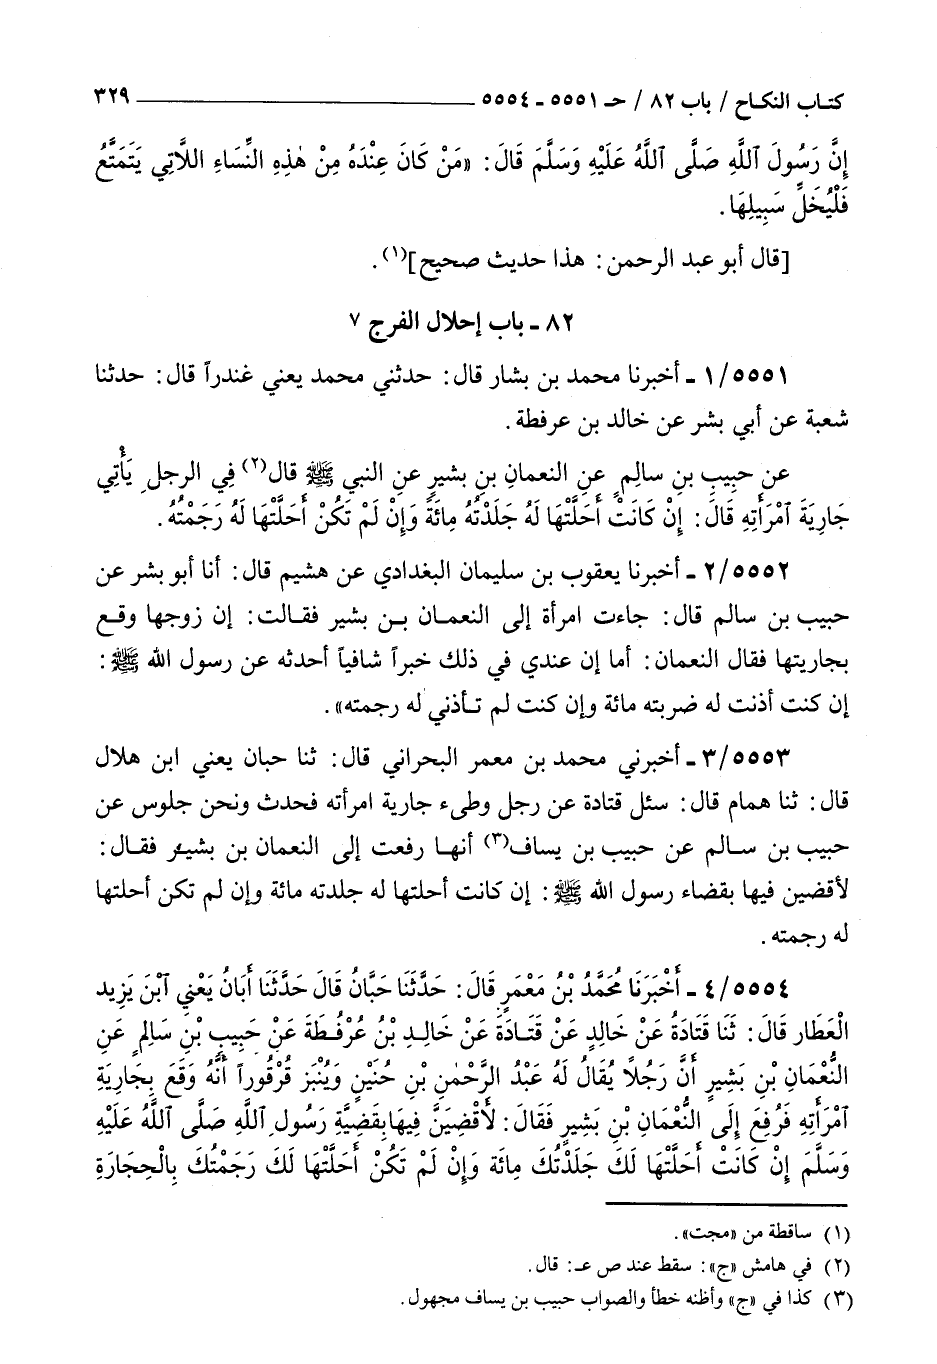 كتاب النكاح / باب ٨٢ / حـ ٥٥٥١ ـ ٥٥٥٤ ٣٢٩
إِنَّ رَسُولَ ٱللَّهِ صَلَّى ٱللَّهُ عَلَيْهِ وَسَلَّمَ قَالَ: «مَنْ كَانَ عِنْدَهُ مِنْ هٰذِهِ النِّسَاءِ اللَّاتِي يَتَمَتَّعُ
فَلْيُخَلِّ سَبِيلِهَا.
[قال أبو عبد الرحمن: هذا حديث صحيح](١).
٨٢ ـ باب إحلال الفرج ٧
٥٥٥١/١ ـ أخبرنا محمد بن بشار قال: حدثني محمد يعني غندراً قال: حدثنا
شعبة عن أبي بشر عن خالد بن عرفطة.
عن حبِيبِ بن سالمٍ عنِ النعمانِ بنِ بشيرٍ عنِ النبي ﷺ قال(٢) فِي الرجلِ يَأْتِي
جَارِيَةَ ٱمْرَأَتِهِ قَالَ: إِنْ كَانَتْ أَحَلَّتْهَا لَهُ جَلَدْتُهُ مِائَةً وَإِنْ لَمْ تَكُنْ أَحَلَّتْهَا لَهُ رَجَمْتُهُ.
٥٥٥٢/٢ ـ أخبرنا يعقوب بن سليمان البغدادي عن هشيم قال: أنا أبو بشر عن
حبيب بن سالم قال: جاءت امرأة إلى النعمان بن بشير فقالت: إن زوجها وقع
بجاريتها فقال النعمان: أما إن عندي في ذلك خبراً شافياً أحدثه عن رسول الله ﷺ:
إن كنت أذنت له ضربته مائة وإن كنت لم تأذني له رجمته».
٥٥٥٣/٣ ـ أخبرني محمد بن معمر البحراني قال: ثنا حبان يعني ابن هلال
قال: ثنا همام قال: سئل قتادة عن رجل وطىء جارية امرأته فحدث ونحن جلوس عن
حبيب بن سالم عن حبيب بن يساف(٣) أنها رفعت إلى النعمان بن بشير فقال:
لأقضين فيها بقضاء رسول الله ﷺ: إن كانت أحلتها له جلدته مائة وإن لم تكن أحلتها
له رجمته.
٥٥٥٤/٤ ـ أَخْبَرَنَا مُحَمَّدُ بْنُ مَعْمَرٍ قَالَ: حَدَّثَنَا حَبَّانُ قَالَ حَدَّثَنَا أَبَانُ يَعْنِي ٱبْنَ يَزِيد
الْعَطَار قَالَ: ثَنَا قَتَادَةُ عَنْ خَالِدٍ عَنْ قَتَادَةَ عَنْ خَالِدِ بْنُ عُرْفُطَةَ عَنْ حَبِيبِ بْنِ سَالِمٍ عَنِ
النُّعْمَانِ بْنِ بَشِيرٍ أَنَّ رَجُلًا يُقَالُ لَهُ عَبْدُ الرَّحْمٰنِ بْنِ حُنَيْنٍ وَيُنْبَز قُرْقُوراً أَنَّهُ وَقَعَ بِجَارِيَةِ
ٱمْرَأَتِهِ فَرُفِعَ إِلَى النُّعْمَانِ بْنِ بَشِيرٍ فَقَالَ: لَأَقْضِيَنَّ فِيهَا بِقَضِيَّةِ رَسُولِ ٱللَّهِ صَلَّى ٱللَّهُ عَلَيْهِ
وَسَلَّمَ إِنْ كَانَتْ أَحَلَّتْهَا لَكَ جَلَدْتُكَ مِائَة وَإِنْ لَمْ تَكُنْ أَحَلَّتْهَا لَكَ رَجَمْتُكَ بِالْحِجَارَةِ
(١) ساقطة من «مجت».
(٢) في هامش «ج»: سقط عند ص عـ: قال.
(٣) كذا في «ج» وأظنه خطأ والصواب حبيب بن يساف مجهول.